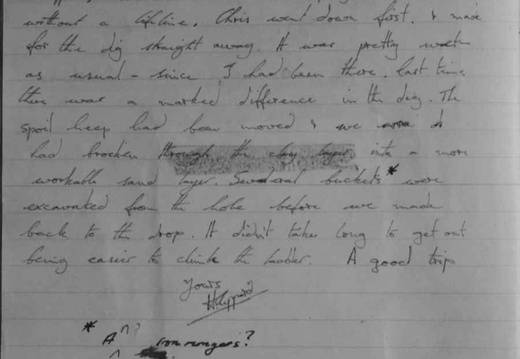 without a lifeline. Chris went down first, & made
for the dig straight away. It was pretty
as usual - since I had been there. last time
there was a marked difference in the dig. The
spoil heap had been moved & we
had broken through the clay layer into a more
workable sand layer. Several buckets* were
excavated from the hole before we made
back to the drop. It didn't take long to get out
being easier to climb the ladder. A good trip
Yours
* A n? Ironmongers?